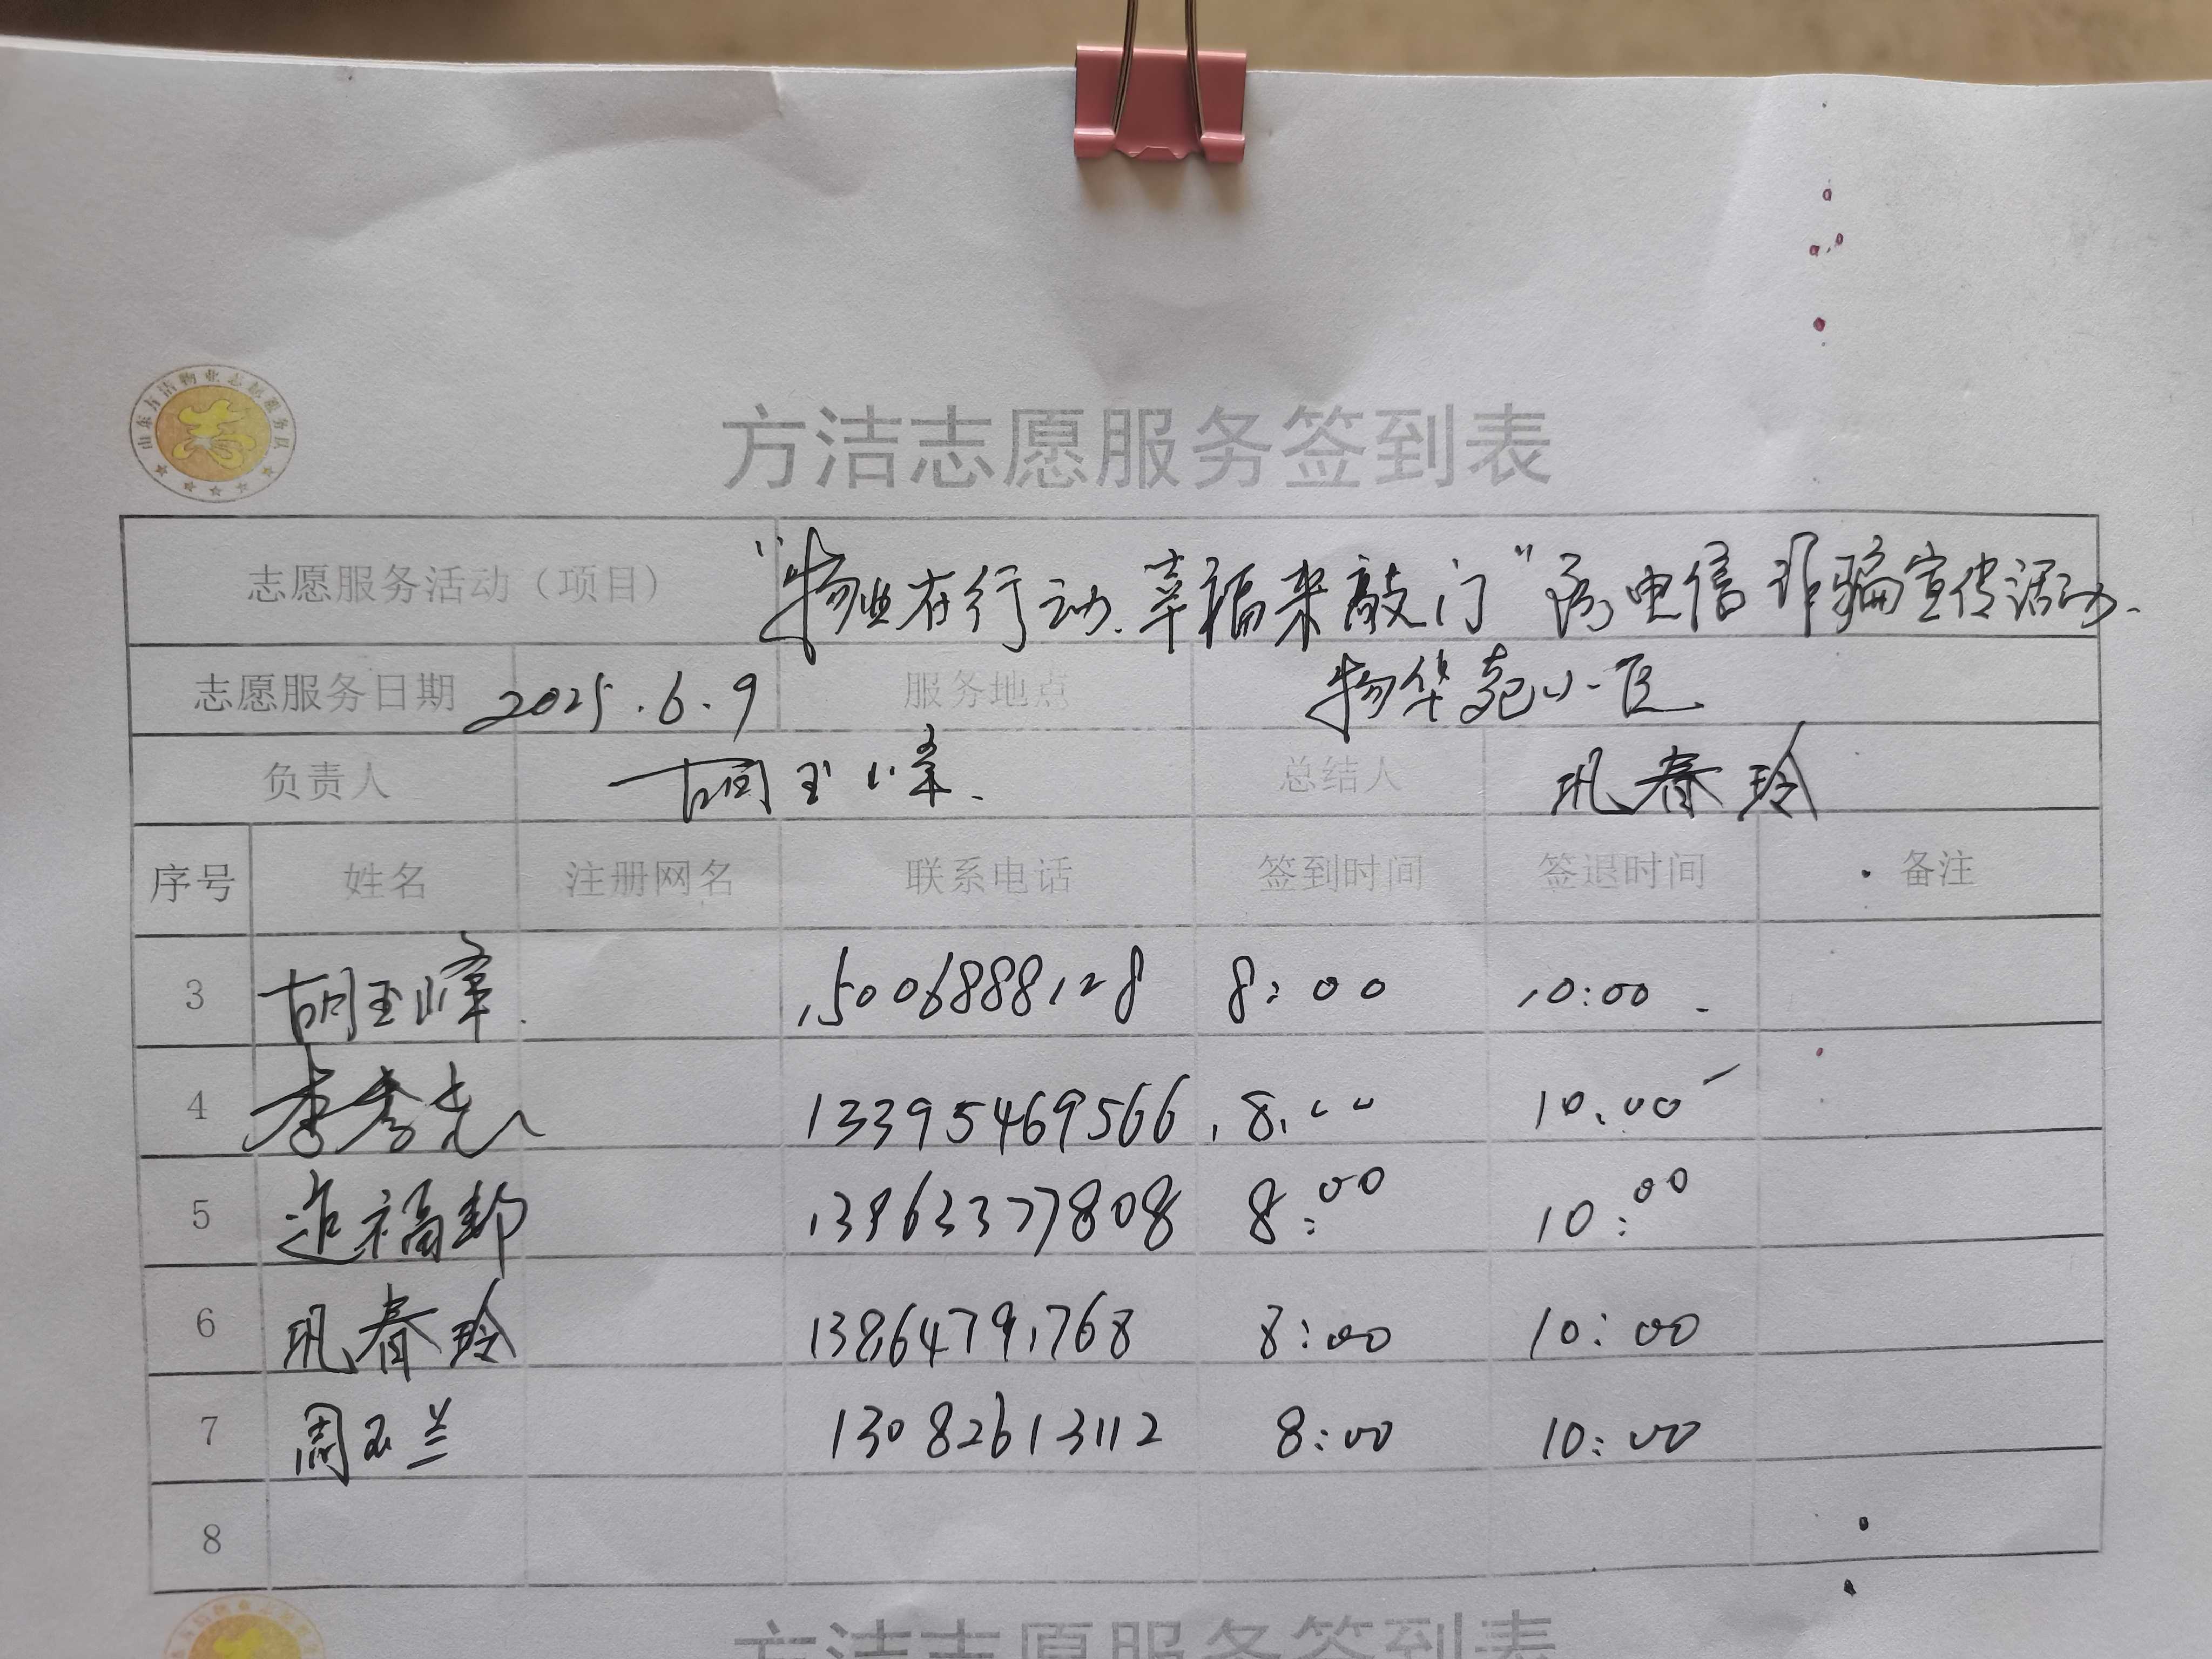 山东方洁物业志愿服务队
方洁志愿服务签到表
志愿服务活动（项目） "物业在行动、幸福来敲门"防电信诈骗宣传活动.
志愿服务日期 2025.6.9 服务地点 物华苑小区
负责人 胡玉峰. 总结人 巩春玲
序号 姓名 注册网名 联系电话 签到时间 签退时间 备注
3 胡玉峰. 15006888128 8:00 10:00
4 李秀 13395469566 8:00 10:00
5 福 13963377808 8:00 10:00
6 巩春玲 13864791768 8:00 10:00
7 周玉兰 13082613112 8:00 10:00
8
方洁志愿服务签到表